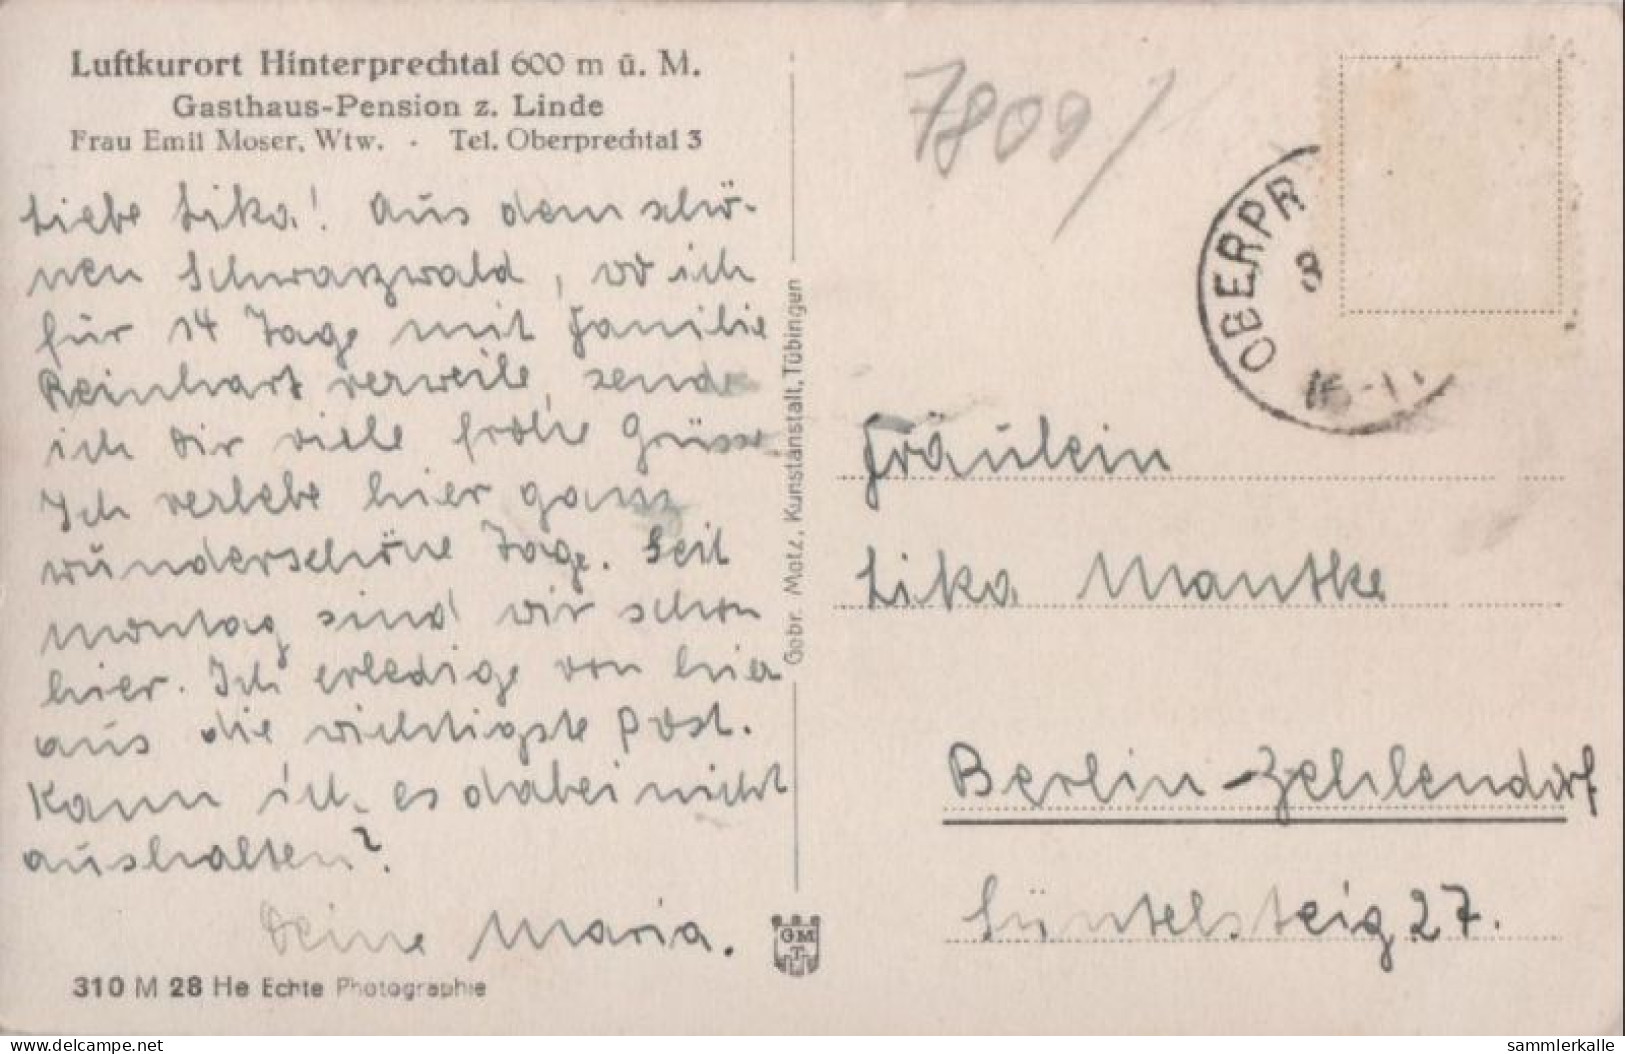 Luftkurort Hinterprechtal 600 m ü. M.
Gasthaus-Pension z. Linde
Frau Emil Moser, Wtw. · Tel. Oberprechtal 3
Liebe Lika! Aus dem schö-
nen Schwarzwald, wo ich
für 14 Tage mit Familie
Reinhart verweile, sende
ich Dir viele frohe Grüsse
Ich verlebe hier ganz
wunderschöne Tage. Seit
Montag sind wir schon
hier. Ich erledige von hier
aus die wichtigste Post.
Kann ich es dabei nicht
aushalten?
Deine Maria.
310 M 28 He Echte Photographie
Gebr. Metz, Kunstanstalt, Tübingen
GMT
7809/
OBERPR
8
16-17
Fräulein
Lika Mantke
Berlin-Zehlendorf
Süntelsteig 27.
www.delcampe.net
sammlerkalle